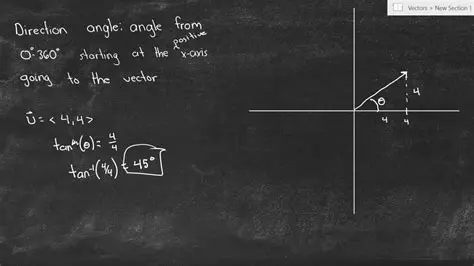 Vectors > New Section 1
Direction angle: angle from
0°-360° starting at the positive x-axis
going to the vector
u⃗ = <4,4>
tan(θ) = 4/4
tan⁻¹(4/4) = 45°
θ
4
4
4